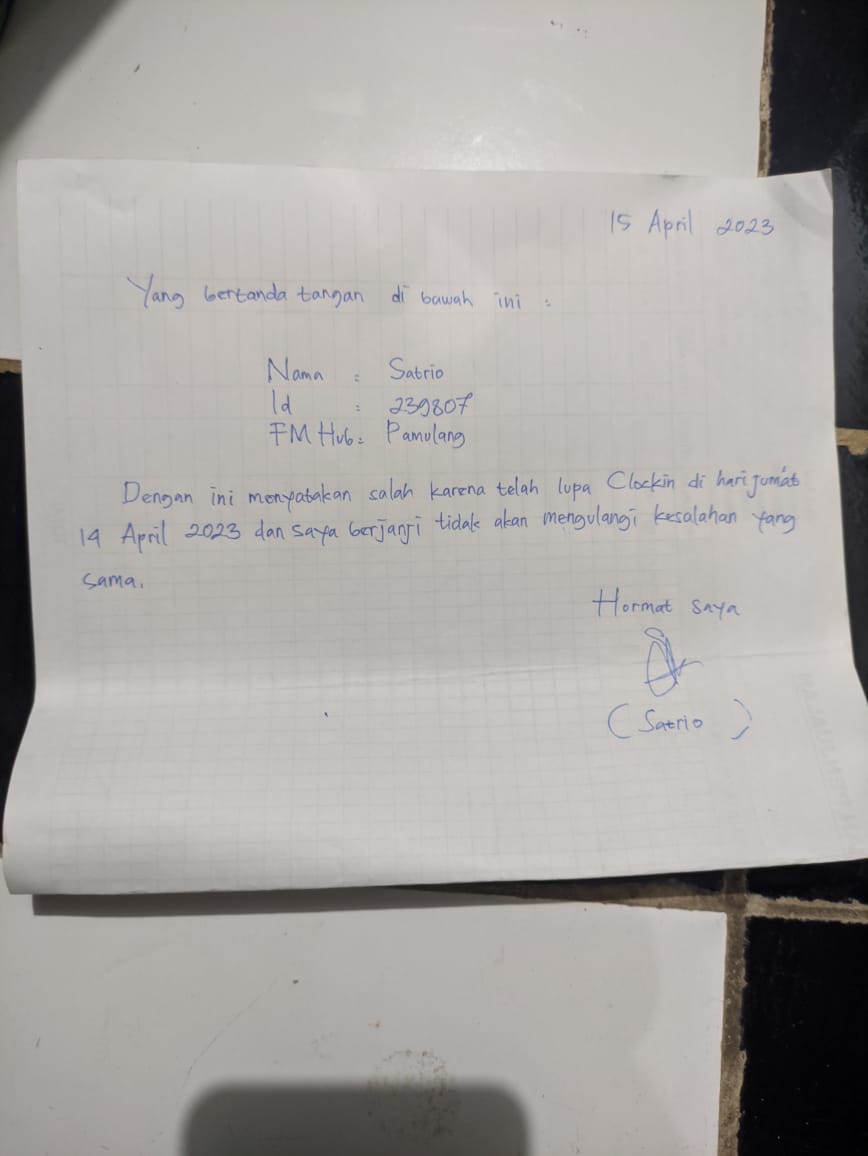 15 April 2023
Yang bertanda tangan di bawah ini :
Nama : Satrio
Id : 239807
FM Hub : Pamulang
Dengan ini menyatakan salah karena telah lupa Clockin di hari jum'at
14 April 2023 dan saya berjanji tidak akan mengulangi kesalahan yang
sama.
Hormat saya
( Satrio )